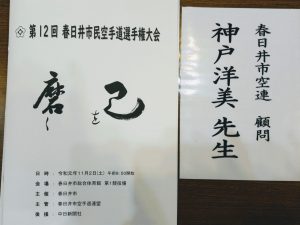 第12回 春日井市民空手道選手権大会
己
を
磨
く
日 時：令和元年11月2日(土) 午前9:00開始
会 場：春日井市総合体育館 第1競技場
主 催：春日井市
主 管：春日井市空手道連盟
後 援：中日新聞社
春日井市空連 顧問
神戸洋美 先生